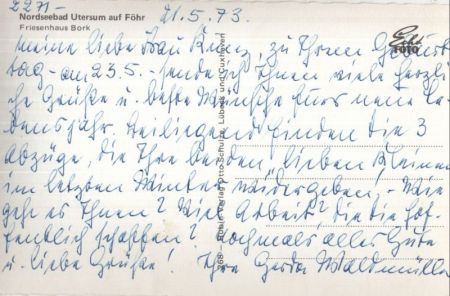 2271-
Nordseebad Utersum auf Föhr
Friesenhaus Bork
21.5.73.
Foto
Meine liebe Frau Kunz, zu Ihrem Geburts
tag - am 23.5. - sende ich Ihnen viele herzli
che Grüße u. beste Wünsche fürs neue Le-
bensjahr. Beiliegend finden Sie 3
Abzüge, die Ihre beiden lieben Kleinen
im letzten Winter wiedergeben. Wie
geht es Ihnen? Viel Arbeit? die Sie hof-
fentlich schaffen? Nochmals alles Gute
u. liebe Grüße! Ihre Gerda Waldmüller
Verlag Otto Schulze, Lübeck und Cuxhaven